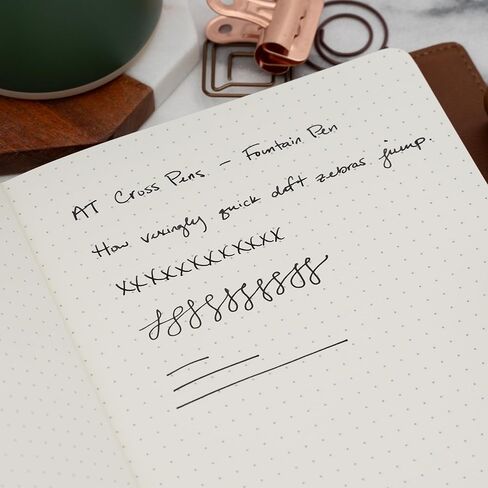 AT Cross Pens – Fountain Pen
How vexingly quick daft zebras jump
xxxxxxxxxxxx